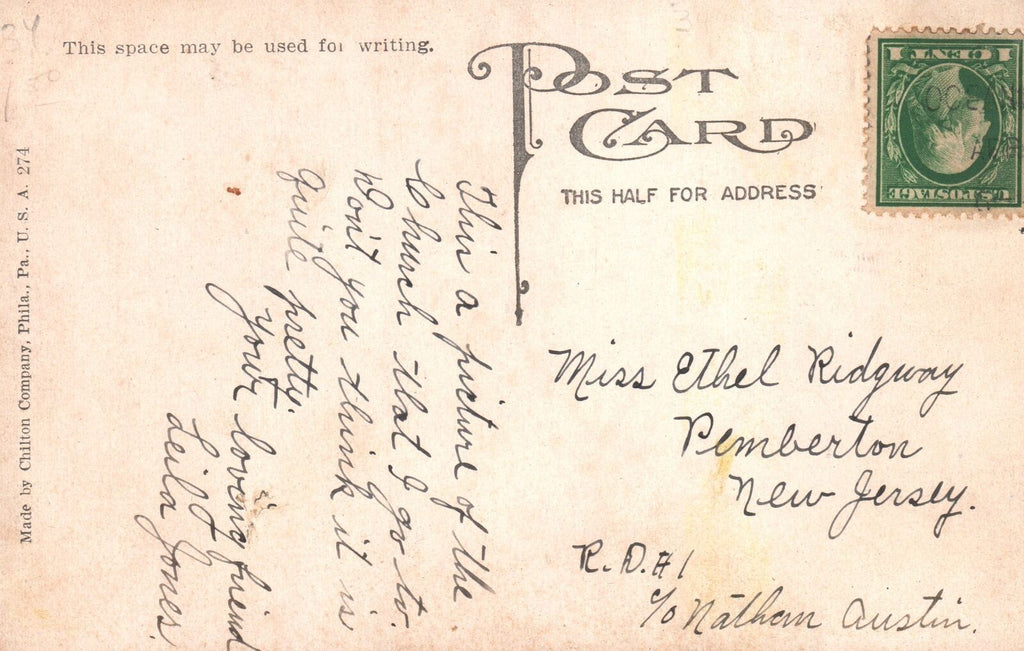 This space may be used for writing.
POST
CARD
THIS HALF FOR ADDRESS
1 CENT 1
U.S. POSTAGE
Made by Chilton Company, Phila., Pa., U. S. A. 274
This a picture of the
Church that I go to.
Don't you think it is
quite pretty.
Your loving friend
Leila Jones.
Miss Ethel Ridgway
Pemberton
New Jersey.
R.D.#1
c/o Nathan Austin.